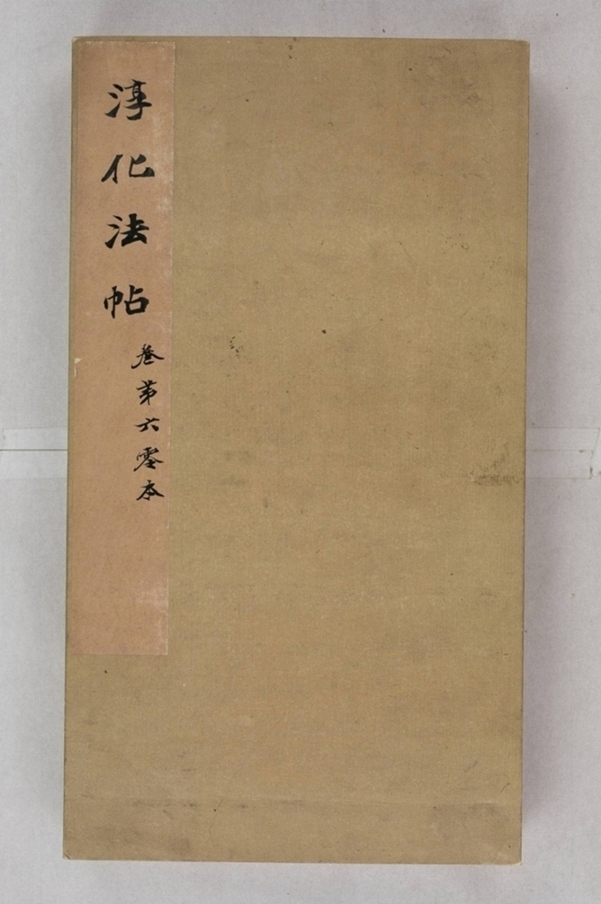 淳化法帖
卷第六零本